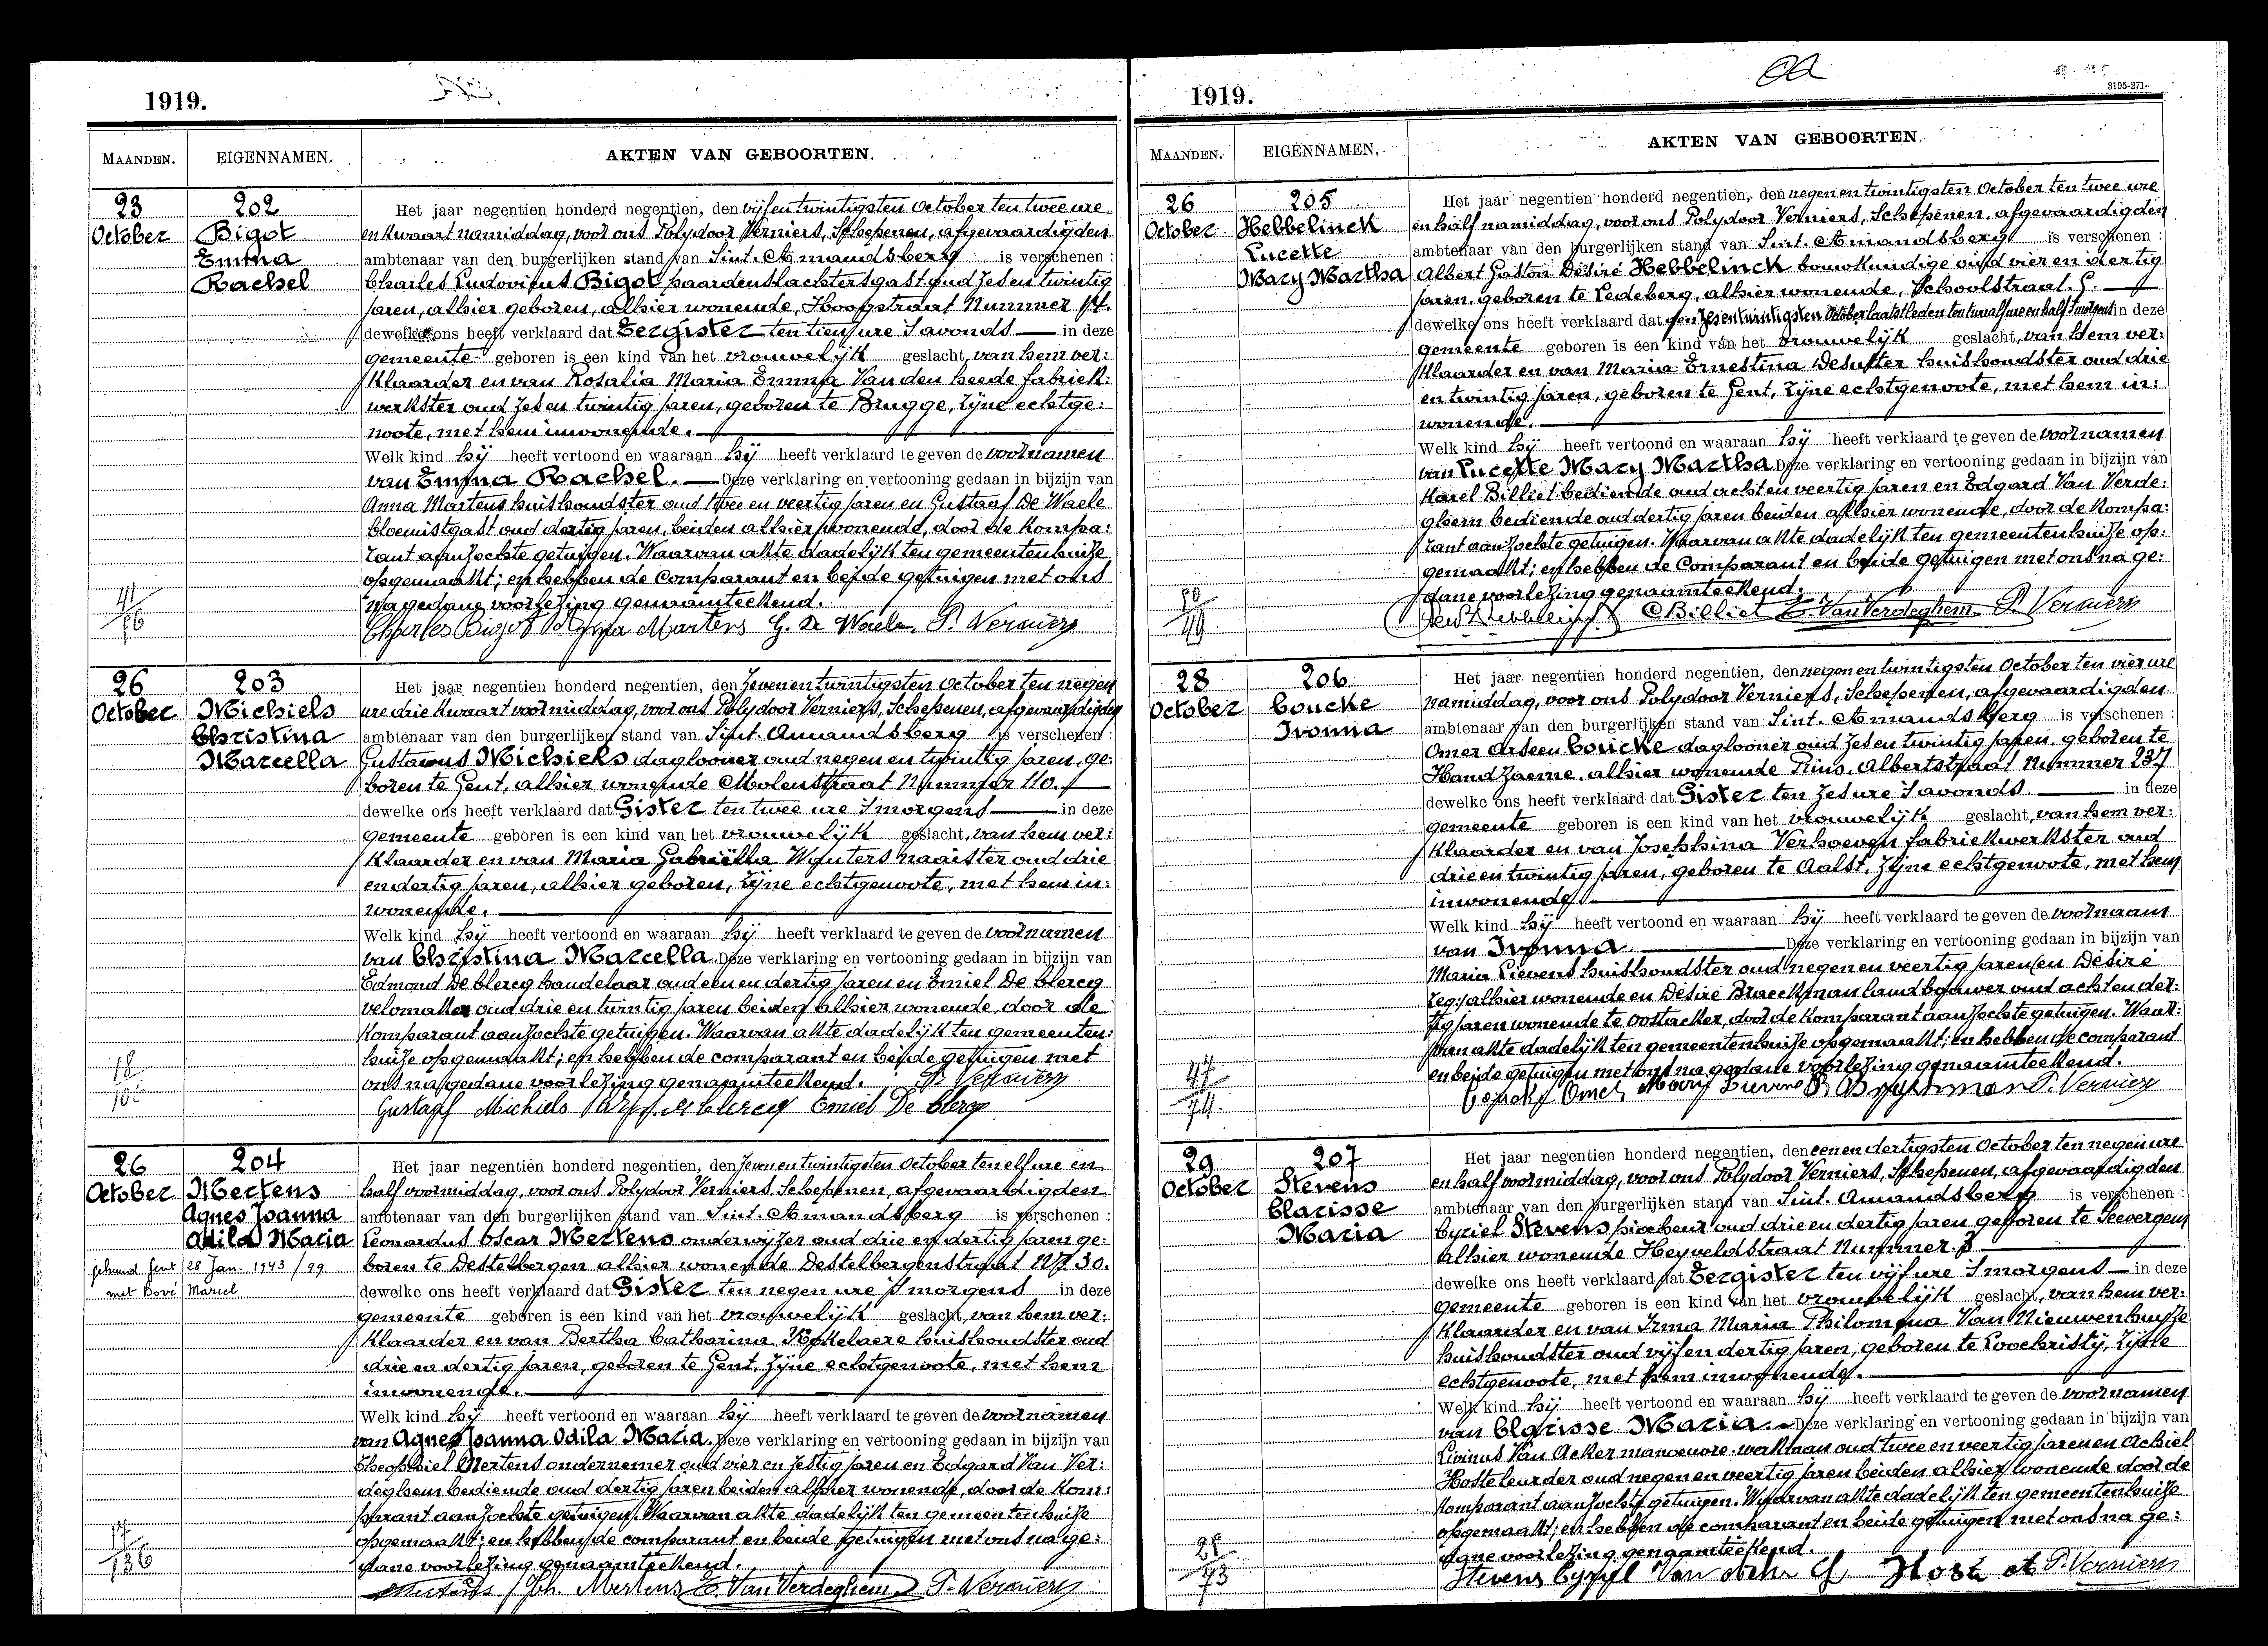 1919.
MAANDEN. EIGENNAMEN. AKTEN VAN GEBOORTEN.
23 October
202
Bigot
Emma
Rachel
Het jaar negentien honderd negentien, den vijfentwintigsten October ten twee ure
en kwaart namiddag, voor ons Polydoor Verniers, Schepenen, afgevaardigden
ambtenaar van den burgerlijken stand van Sint. Amandsberg is verschenen :
Charles Ludovicus Bigot paardenslachtersgast oud zesen twintig
jaren, alhier geboren, alhier wonende, Hoofstraat Nummer 14.
dewelke ons heeft verklaard dat Eergister ten tien ure 's avonds in deze
gemeente geboren is een kind van het vrouwelijk geslacht, van hem ver:
klaarder en van Rosalia Maria Emma Van den heede fabriek:
werkster oud zesen twintig jaren, geboren te Brugge, zijne echtge:
noote, met hem inwonende.
Welk kind hij heeft vertoond en waaraan hij heeft verklaard te geven de voornamen
van Emma Rachel. Deze verklaring en vertooning gedaan in bijzijn van
Anna Martens huishoudster oud twee en veertig jaren en Gustaaf De Waele
bloemistgast oud dertig jaren, beiden alhier wonende, door de kompa:
rant aanzochte getuigen. Waarvan akte dadelijk ten gemeentenhuize
opgemaakt; en hebben de comparant en beide getuigen met ons
na gedane voorlezing genaamteekend.
41/76
Charles Bigot Anna Martens G. De Waele P. Verniers
26 October
203
Michiels
Christina
Marcella
Het jaar negentien honderd negentien, den zevenentwintigsten October ten negen
ure drie kwaart voormiddag, voor ons Polydoor Verniers, Schepenen, afgevaardigden
ambtenaar van den burgerlijken stand van Sint. Amandsberg is verschenen :
Gustavus Michiels daglooner oud negen en twintig jaren, ge:
boren te Gent, alhier wonende Molenstraat Nummer 110.
dewelke ons heeft verklaard dat Gister ten twee ure 's morgens in deze
gemeente geboren is een kind van het vrouwelijk geslacht, van hem ver:
klaarder en van Maria Gabriëlla Wynters naaister oud drie
en dertig jaren, alhier geboren, zijne echtgenoote, met hem in:
wonende.
Welk kind hij heeft vertoond en waaraan hij heeft verklaard te geven de voornamen
van Christina Marcella. Deze verklaring en vertooning gedaan in bijzijn van
Edmond De Clercq handelaar oud een en dertig jaren en Emiel De Clercq
velomaker oud drie en twintig jaren beiden alhier wonende, door de
komparant aanzochte getuigen. Waarvan akte dadelijk ten gemeenten:
huize opgemaakt; en hebben de comparant en beide getuigen met
ons na gedane voorlezing genaamteekend. P. Verniers
18
Gustaaf Michiels Emiel De Clercq
26 October
204
Mertens
Agnes Joanna
Odila Maria
gehuwd Gent 28 Jan. 1943 / 99
met Bové Marcel
Het jaar negentien honderd negentien, den zevenentwintigsten October ten elf ure en
half voormiddag, voor ons Polydoor Verniers, Schepenen, afgevaardigden
ambtenaar van den burgerlijken stand van Sint. Amandsberg is verschenen :
Leonardus Oscar Mertens onderwijzer oud drie en dertig jaren ge:
boren te Destelbergen alhier wonende Destelbergenstraat Nr. 30.
dewelke ons heeft verklaard dat Gister ten negen ure 's morgens in deze
gemeente geboren is een kind van het vrouwelijk geslacht, van hem ver:
klaarder en van Bertha Catharina Kokelaere huishoudster oud
drie en dertig jaren, geboren te Gent, zijne echtgenoote, met hem
inwonende.
Welk kind hij heeft vertoond en waaraan hij heeft verklaard te geven de voornamen
van Agnes Joanna Odila Maria. Deze verklaring en vertooning gedaan in bijzijn van
Theophiel Mertens ondernemer oud vier en zestig jaren en Edgard Van Ver:
deghem bediende oud dertig jaren beiden alhier wonende, door de kom:
parant aanzochte getuigen. Waarvan akte dadelijk ten gemeentenhuize
opgemaakt; en hebben de comparant en beide getuigen met ons na ge:
dane voorlezing genaamteekend.
136
Mertens E. Van Verdeghem P. Verniers
1919.
3195-271-
MAANDEN. EIGENNAMEN. AKTEN VAN GEBOORTEN.
26 October
205
Hebbelinck
Lucette
Mary Martha
Het jaar negentien honderd negentien, den negenentwintigsten October ten twee ure
en half namiddag, voor ons Polydoor Verniers, Schepenen, afgevaardigden
ambtenaar van den burgerlijken stand van Sint. Amandsberg is verschenen :
Albert Gaston Désiré Hebbelinck bouwkundige oud vier en dertig
jaren, geboren te Ledeberg, alhier wonende, Schoolstraat. 5.
dewelke ons heeft verklaard dat den zesentwintigsten October laatstleden ten twaalf ure en half 's morgens in deze
gemeente geboren is een kind van het vrouwelijk geslacht, van hem ver:
klaarder en van Maria Ernestina Desutter huishoudster oud drie
en twintig jaren, geboren te Gent, zijne echtgenoote, met hem in:
wonende.
Welk kind hij heeft vertoond en waaraan hij heeft verklaard te geven de voornamen
van Lucette Mary Martha. Deze verklaring en vertooning gedaan in bijzijn van
Karel Billiet bediende oud acht en veertig jaren en Edgard Van Verde:
ghem bediende oud dertig jaren beiden alhier wonende, door de kompa:
rant aanzochte getuigen. Waarvan akte dadelijk ten gemeentenhuize op:
gemaakt; en hebben de comparant en beide getuigen met ons na ge:
dane voorlezing genaamteekend.
Hebbelinck CBilliet E. Van Verdeghem P. Verniers
28 October
206
Coucke
Ivonna
Het jaar negentien honderd negentien, den negenentwintigsten October ten vier ure
namiddag, voor ons Polydoor Verniers, Schepenen, afgevaardigden
ambtenaar van den burgerlijken stand van Sint. Amandsberg is verschenen :
Omer Arseen Coucke daglooner oud zesen twintig jaren, geboren te
Handzaeme, alhier wonende Prins. Albertstraat Nummer 237
dewelke ons heeft verklaard dat Gister ten zes ure 's avonds. in deze
gemeente geboren is een kind van het vrouwelijk geslacht, van hem ver:
klaarder en van Josephina Verhoeven fabriekwerkster oud
drie en twintig jaren, geboren te Aalst, zijne echtgenoote, met hem
inwonende
Welk kind hij heeft vertoond en waaraan hij heeft verklaard te geven de voornaam
van Ivonna Deze verklaring en vertooning gedaan in bijzijn van
Maria Lievens huishoudster oud negen en veertig jaren (en Désiré
zeg:) alhier wonende en Désiré Braeckman landbouwer oud acht en der:
tig jaren wonende te Oostacker, door de komparant aanzochte getuigen. Waar:
van akte dadelijk ten gemeentenhuize opgemaakt; en hebben de comparant
en beide getuigen met ons na gedane voorlezing genaamteekend.
47/74
Coucke Omer Mary Lievens P. Verniers
29 October
207
Stevens
Clarisse
Maria
Het jaar negentien honderd negentien, den eenendertigsten October ten negen ure
en half voormiddag, voor ons Polydoor Verniers, Schepenen, afgevaardigden
ambtenaar van den burgerlijken stand van Sint. Amandsberg is verschenen :
Cyriel Stevens piocheur oud drie en dertig jaren geboren te Seevergem
alhier wonende Heyveldstraat Nummer
dewelke ons heeft verklaard dat Eergister ten vijf ure 's morgens in deze
gemeente geboren is een kind van het vrouwelijk geslacht, van hem ver:
klaarder en van Irma Maria Philomena Van Nieuwenhuyze
huishoudster oud vijf en dertig jaren, geboren te Loochristy, zijne
echtgenoote, met hem inwonende.
Welk kind hij heeft vertoond en waaraan hij heeft verklaard te geven de voornamen
van Clarisse Maria. Deze verklaring en vertooning gedaan in bijzijn van
Livinus Van Acker manoeuvre-werkman oud twee en veertig jaren en Achiel
Hoste leurder oud negen en veertig jaren beiden alhier wonende door de
komparant aanzochte getuigen. Waarvan akte dadelijk ten gemeentenhuize
opgemaakt; en hebben de comparant en beide getuigen met ons na ge:
dane voorlezing genaamteekend.
Stevens Cyriel P. Verniers